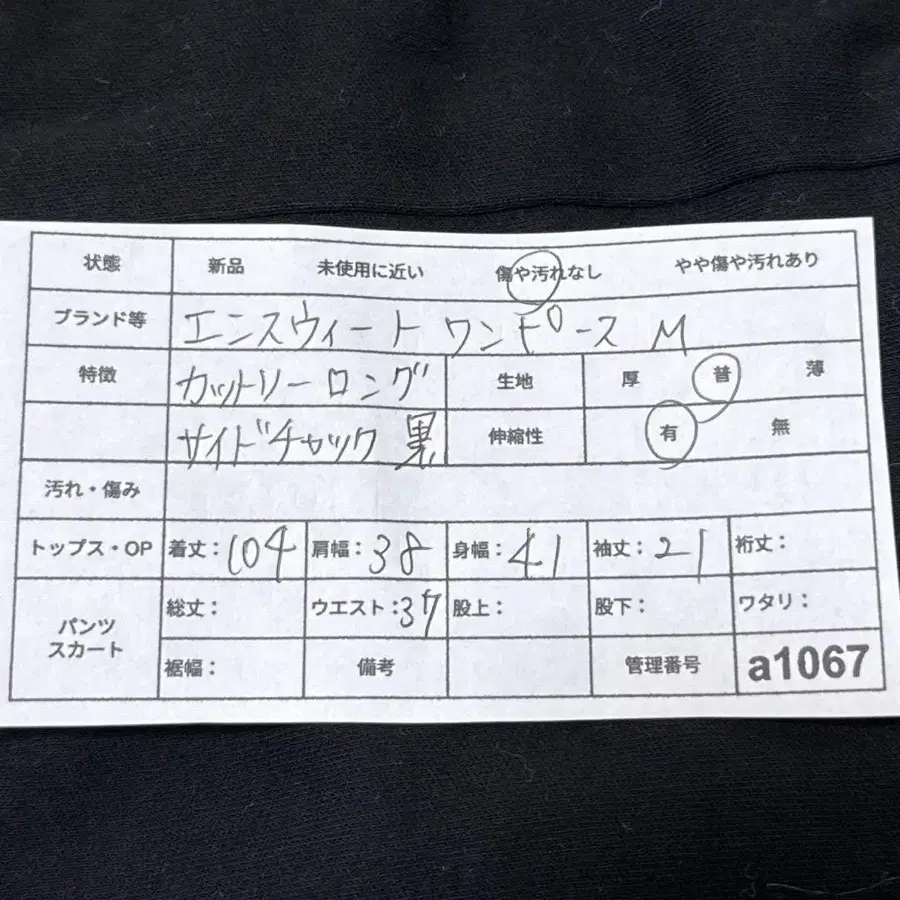 状態 新品 未使用に近い 傷や汚れなし やや傷や汚れあり
ブランド等 エンスウィート ワンピース M
特徴 カットソー ロング 生地 厚 普 薄
サイドチャック 黒 伸縮性 有 無
汚れ・傷み
トップス・OP 着丈：104 肩幅：38 身幅：41 袖丈：21 裄丈：
パンツ スカート 総丈： ウエスト：37 股上： 股下： ワタリ：
裾幅： 備考 管理番号 a1067